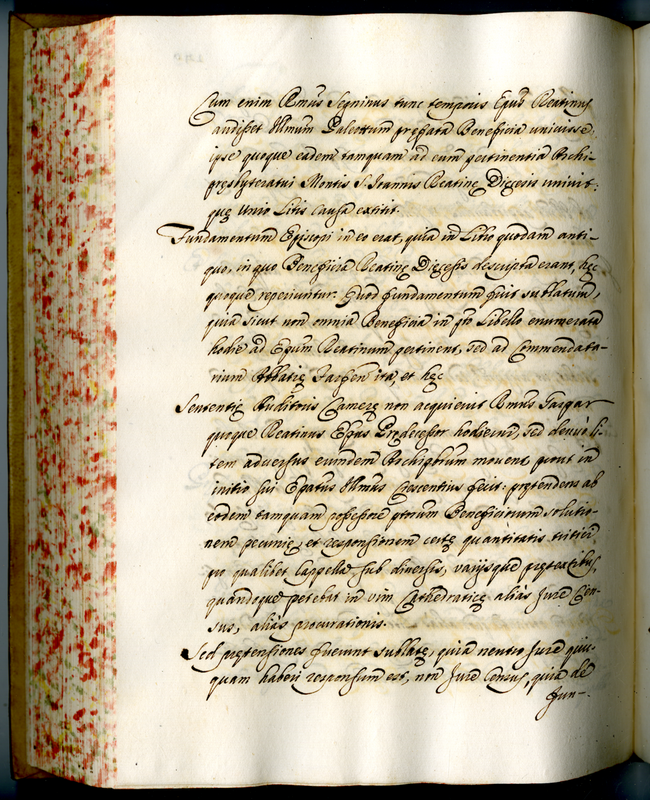 Cum enim Rmũs Segninus tunc temporis Epũs Reatinus
audisset Illmum Paleottum prefata Beneficia univisse,
ipse quoque eadem tamquam ad eum pertinentia Archi-
presbyteratui Montis S. Joannis Reatinę Dięcesis univit:
quę Unio Litis causa extitit.
Fundamentum Episcopi in eo erat, quia in Libro quodam anti-
quo, in quo Beneficia Reatinę Dięcesis descripta erant, hęc
quoque reperiuntur. Quod fundamentum fuit sublatum,
quia sicut non omnia Beneficia in qto Libello enumerata
hodie ad Epum Reatinum pertinent, sed ad Commendata-
rium Abbatię Farfen ita, et hęc
Sententię Auditoris Camerę non acquievit Rmũs
quoque Reatinus Epũs Predecessor hodierni, sed denuo li-
tem adversus eumdem Archipbrum movent, prout in
initio sui Epatus Illmũs Crescentius fecit: prętendens ab
eodem tamquam possessore ptorum Beneficiorum solutio-
nem pecunię, et responsionem certę quantitatis tritici
pro qualibet Cappella sub diversis, varijsque prętextibus,
quandoque petebat in vim Cathedraticę alias Jure Cen-
sus, alias procurationis.
Sed pręten­siones fuerunt sublatę, quia neutro Jure quic-
quam haberi responsum est, non Jure Census, quia de
Jun-